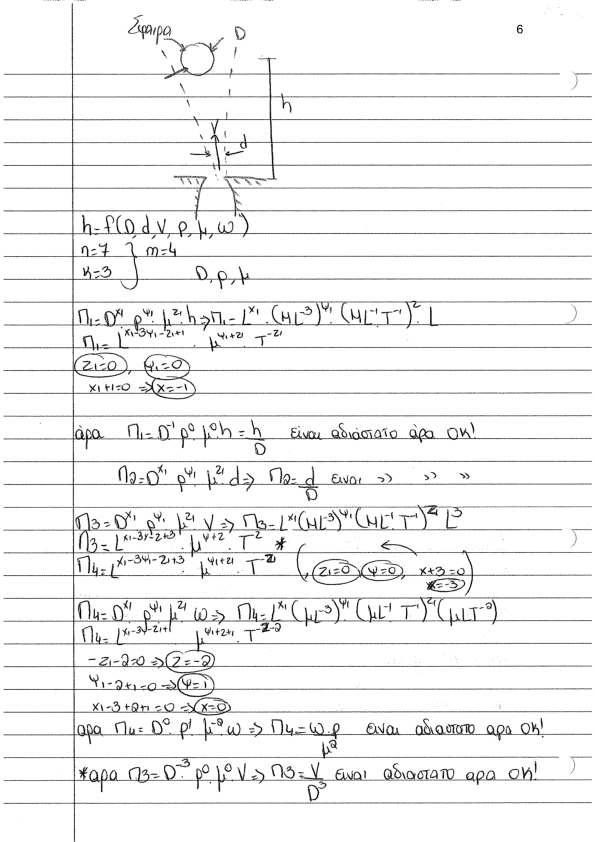 6
Σφαίρα D
h
V
d
h=f(D, d, V, ρ, μ, ω)
n=7 } m=4
k=3 D, ρ, μ
Π1=D^x1 · ρ^ψ1 · μ^z1 · h => Π1= L^x1 · (ML^-3)^ψ1 · (ML^-1T^-1)^z · L
Π1= L^x1-3ψ1-z1+1 · μ^ψ1+z1 · T^-z1
z1=0, ψ1=0
x1+1=0 => x=-1
άρα Π1= D^-1 ρ^0 μ^0 h = h/D είναι αδιάστατο άρα OK!
Π2=D^x1 ρ^ψ1 μ^z1 d => Π2= d/D ειναι >> >> >>
Π3= D^x1 ρ^ψ1 μ^z1 V => Π3= L^x1 (ML^-3)^ψ1 (ML^-1 T^-1)^z1 L^3
Π3= L^x1-3ψ-z+3 · μ^ψ+z · T^-z *
Π4= L^x1-3ψ1-z1+3 · μ^ψ1+z1 · T^-z1 (, z1=0 ψ=0, x+3=0
x=-3)
Π4= D^x1 ρ^ψ1 μ^z1 ω => Π4= L^x1 (μL^-3)^ψ1 (μL^-1 T^-1)^z1 (μLT^-2)
Π4= L^x1-3ψ-z1+1 μ^ψ1+z+1 · T^-z-2
-z1-2=0 => z=-2
ψ1-2+1=0 => ψ=1
x1-3+2+1=0 => x=0
αρα Π4= D^0 · ρ^1 · μ^-2 ω => Π4= ω·ρ/μ^2 ειναι αδιαστατο αρα OK!
*αρα Π3= D^-3 ρ^0 μ^0 V => Π3= V/D^3 ειναι αδιαστατο αρα OK!